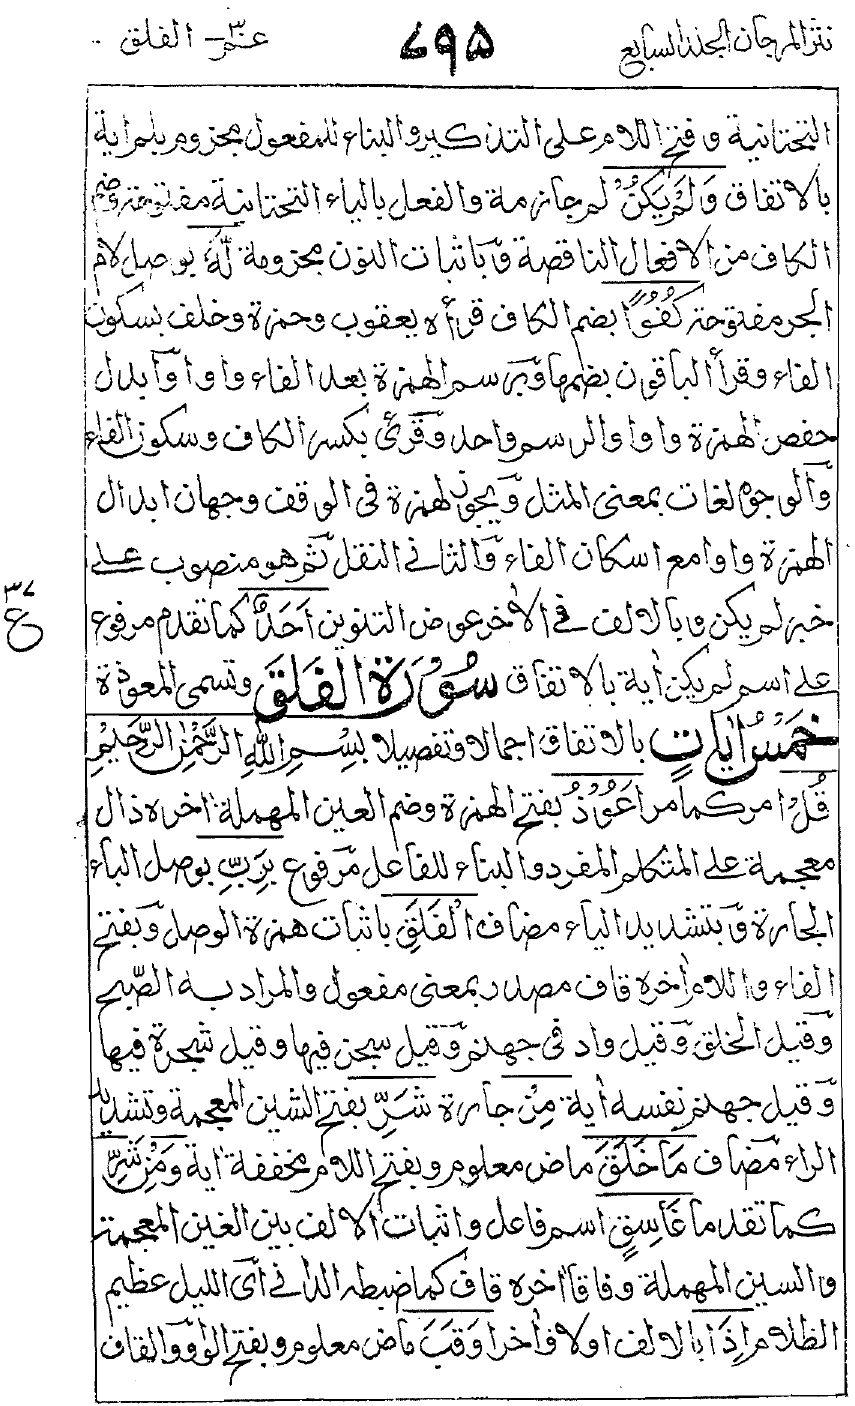 نثر المرجان الجلد السابع ٧٩٥ عـم٣ـ الفلق
التحتانية وفتح اللام على التذكير والبناء للمفعول مجزوم بلم اية
بالاتفاق وَلَمْ يَكُنْ لم جازمة والفعل بالياء التحتانية مفتوحة وضم
الكاف من الافعال الناقصة وباثبات النون مجزومة لَّهٗ بوصل لام
الجر مفتوحة كُفُوًا بضم الكاف قرأه يعقوب وحمزة وخلف بسكون
الفاء وقرأ الباقون بضمها وبرسم الهمزة بعد الفاء واوا وابدال
حفص الهمزة واوا والرسم واحد وقرئ بكسر الكاف وسكون الفاء
والوجوه لغات بمعنى المثل ويجوز لهمزة فى الوقف وجهان ابدال
الهمزة واوا مع اسكان الفاء والثانى النقل ثم هو منصوب على
خبر لم يكن وبالالف فى الأخر عوض التنوين اَحَدٌ كما تقدم مرفوع
على اسم لم يكن اية بالاتفاق سُوْرَةُ الْفَلَقِ وتسمى المعوذة
خَمْسُ اٰيٰاتٍ بالاتفاق اجمالا وتفصيلا بِسْمِ اللّٰهِ الرَّحْمٰنِ الرَّحِيْمِ
قُلْ امر كما مر اَعُوْذُ بفتح الهمزة وضم العين المهملة اخره ذال
معجمة على المتكلم المفرد والبناء للفاعل مرفوع بِرَبِّ بوصل الباء
الجارة وبتشديد الباء مضاف الْفَلَقِ باثبات همزة الوصل وبفتح
الفاء واللام اخره قاف مصدر بمعنى مفعول والمراد به الصّبح
وقيل الخلق وقيل واد فى جهنم وقيل سجن فيها وقيل شجرة فيها
وقيل جهنم نفسه اية مِنْ جارة شَرِّ بفتح الشين المعجمة وتشديد
الراء مضاف مَا خَلَقَ ماض معلوم وبفتح اللام مخففة اية وَمِنْ شَرِّ
كما تقدما غَاسِقٍ اسم فاعل واثبات الالف بين الغين المعجمة
والسين المهملة وفاقا اخره قاف كما ضبطه الدانى أى الليل عظيم
الظلام اِذَا بالالف اولا وأخرا وَقَبَ ماض معلوم وبفتح الواو والقاف
٣٧
ع